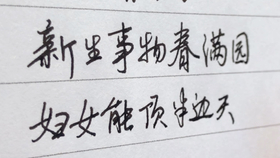 新生事物春满园
妇女能顶半边天